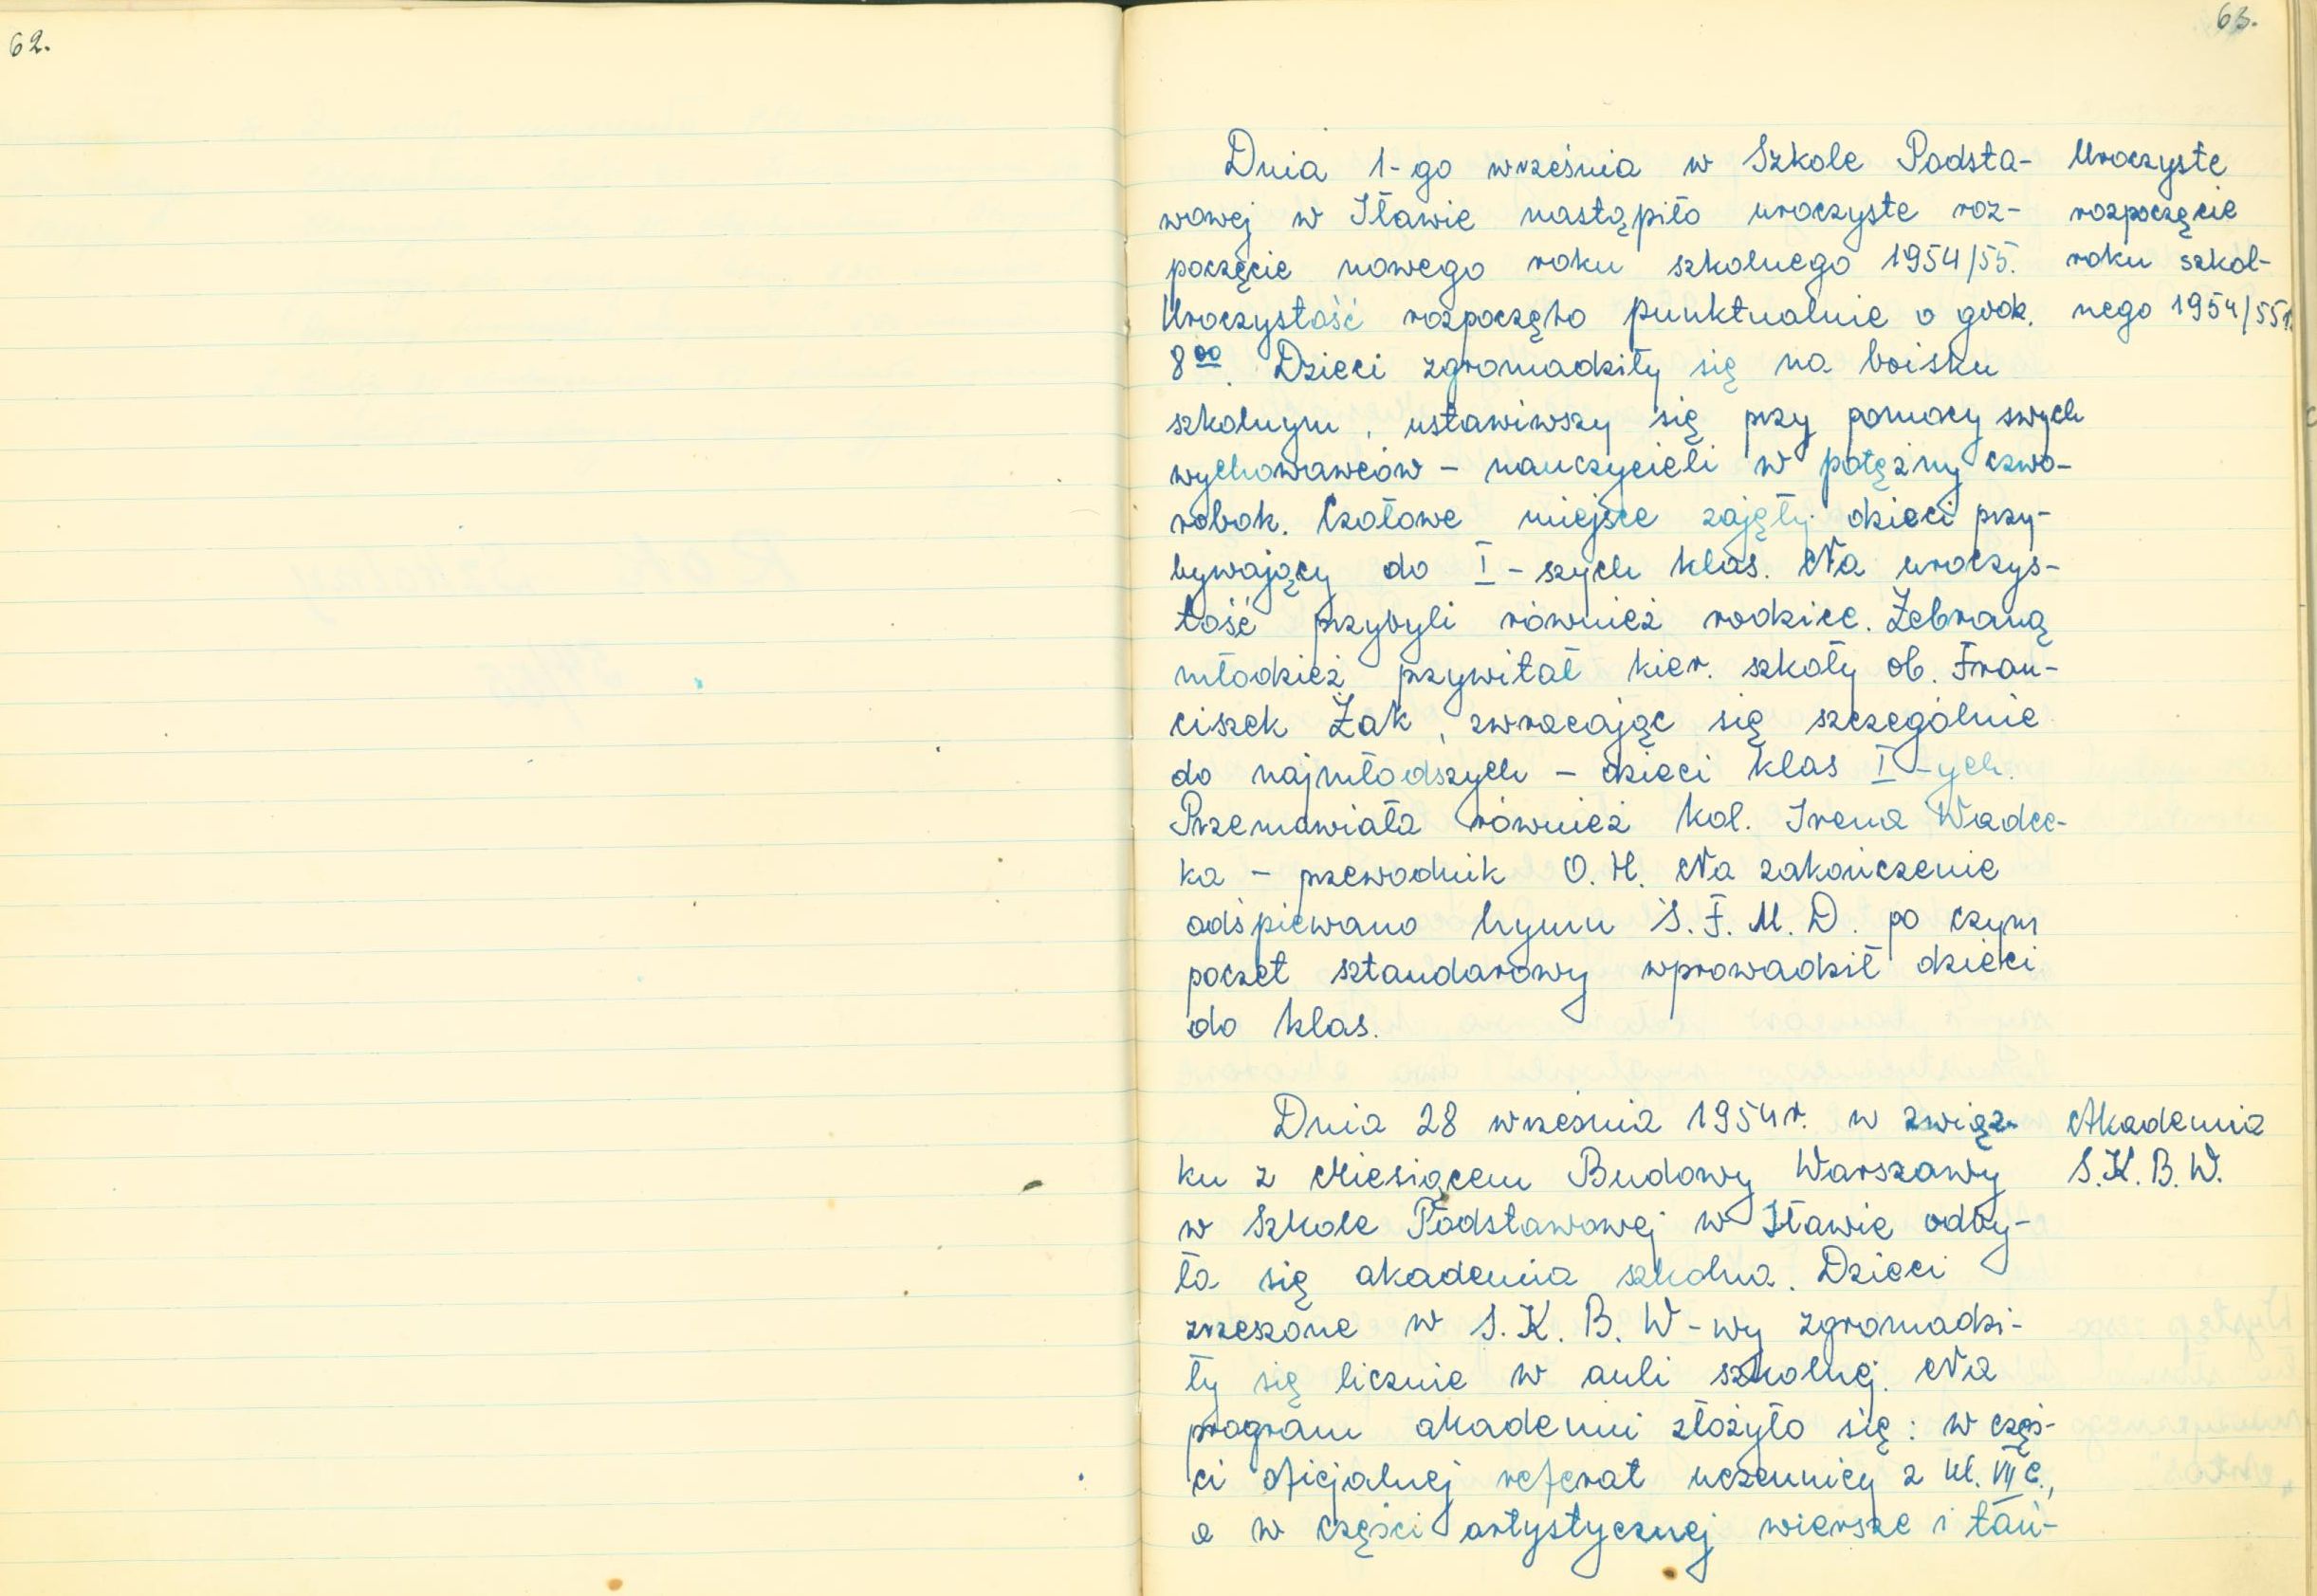 62.
63.
Dnia 1-go września w Szkole Podsta-
wowej w Iławie nastąpiło uroczyste roz-
poczęcie nowego roku szkolnego 1954/55.
Uroczystość rozpoczęto punktualnie o godz.
8⁰⁰. Dzieci zgromadziły się na boisku
szkolnym, ustawiwszy się przy pomocy swych
wychowawców - nauczycieli w potężny czwo-
robok. Czołowe miejsce zajęły dzieci przy-
bywający do I-szych klas. Na uroczys-
tość przybyli również rodzice. Zebraną
młodzież przywitał kier. szkoły ob. Fran-
ciszek Żak, zwracając się szczególnie
do najmłodszych - dzieci klas I-ych.
Przemawiała również kol. Irena Wadec-
ka - przewodnik O.H. Na zakończenie
odśpiewano hymn Ś.F.M.D. po czym
poczet sztandarowy wprowadził dzieci
do klas.
Uroczyste
rozpoczęcie
roku szkol-
nego 1954/55r.
Dnia 28 września 1954r. w związ-
ku z Miesiącem Budowy Warszawy
w Szkole Podstawowej w Iławie odby-
ła się akademia szkolna. Dzieci
zrzeszone w S.K.B.W-wy zgromadzi-
ły się licznie w auli szkolnej. Na
program akademii złożyło się: w częś-
ci oficjalnej referat uczennicy z kl. VII c.,
a w części artystycznej wiersze i tań-
Akademia
S.K.B.W.